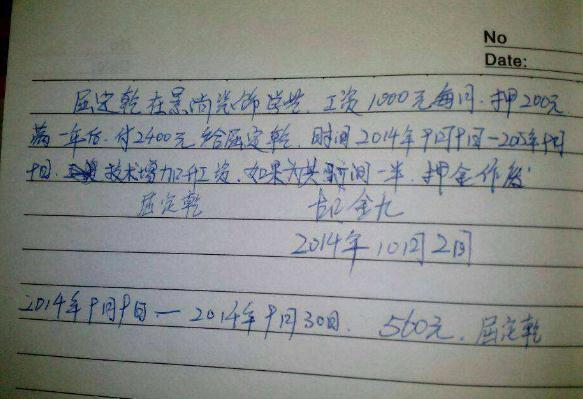 No
Date:
屈定乾在景尚装饰学艺.工资1000元每月.押200元
满一年后.付2400元给屈定乾.时间2014年9月9日—2015年9月
9日.技术增加升工资.如果为其时间一半.押金作废
屈定乾 金九
2014年10月2日
2014年9月9日—2014年9月30日. 560元.屈定乾